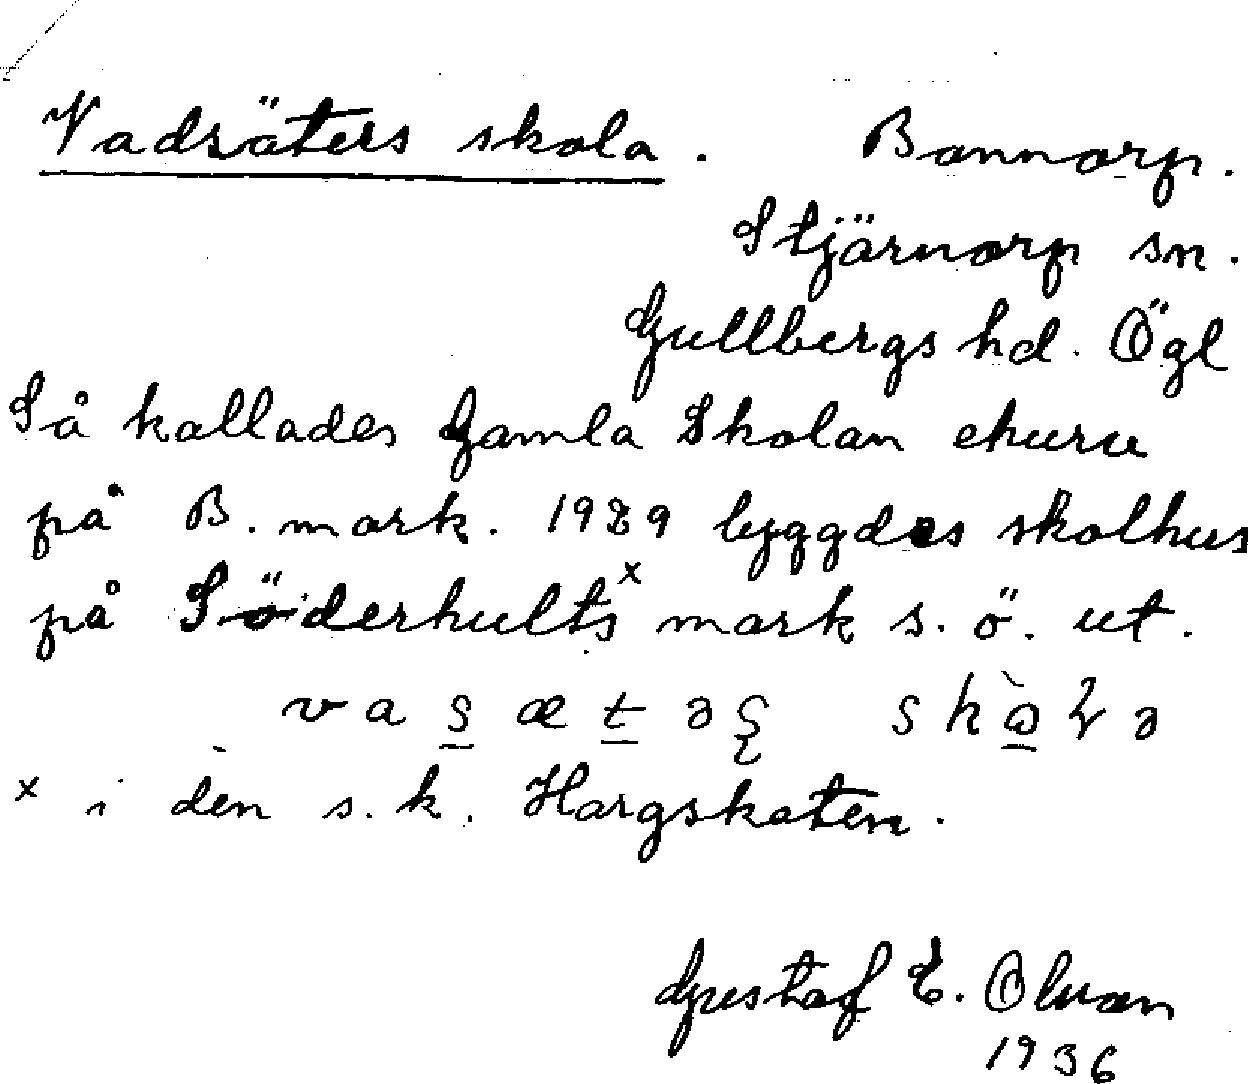 Vadsäters skola. Bannorp.
Stjärnorp sn.
Gullbergs hd. Ögl
Så kallades Gamla Skolan ehuru
på B. mark. 1929 byggdes skolhus
på Söderhults x mark s. ö. ut.
x i den s. k. Hargskaten.
Gustaf E. Olson
1936